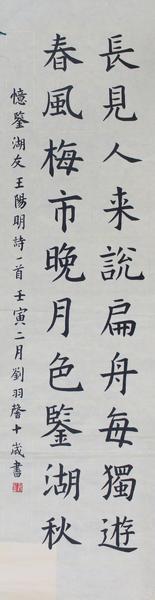 長見人来說扁舟每獨遊
春風梅市晚月色鑒湖秋
憶鑒湖友王陽明詩一首壬寅二月劉羽馨十歲書